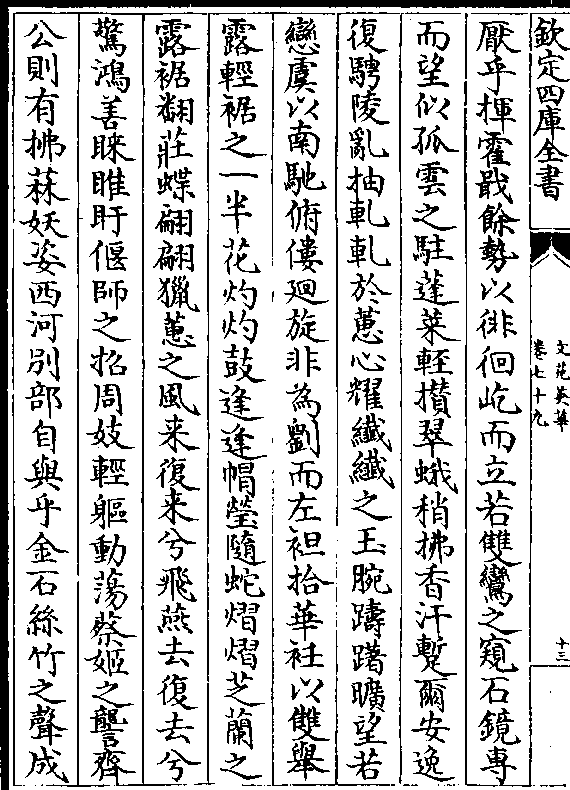 欽定四庫全書
文苑英華
卷七十九
十三
厭乎揮霍戢餘勢以徘徊屹而立若雙鸞之窺石鏡專
而望似孤雲之駐蓬萊輕攢翠蛾稍拂香汗蹔爾安逸
復騁陵亂抽軋軋於蕙心耀纖纖之玉腕躊躇曠望若
戀虞以南馳俯僂迴旋非為劉而左袒抬華袿以雙舉
露輕裾之一半花灼灼鼓逢逢帽瑩隨蛇熠熠芝蘭之
露裾翻莊蝶翩翩獵蕙之風来復来兮飛燕去復去兮
驚鴻善睞睢盱偃師之招周妓輕軀動蕩蔡姬之讋齊
公則有拂菻妖姿西河別部自與乎金石絲竹之聲成